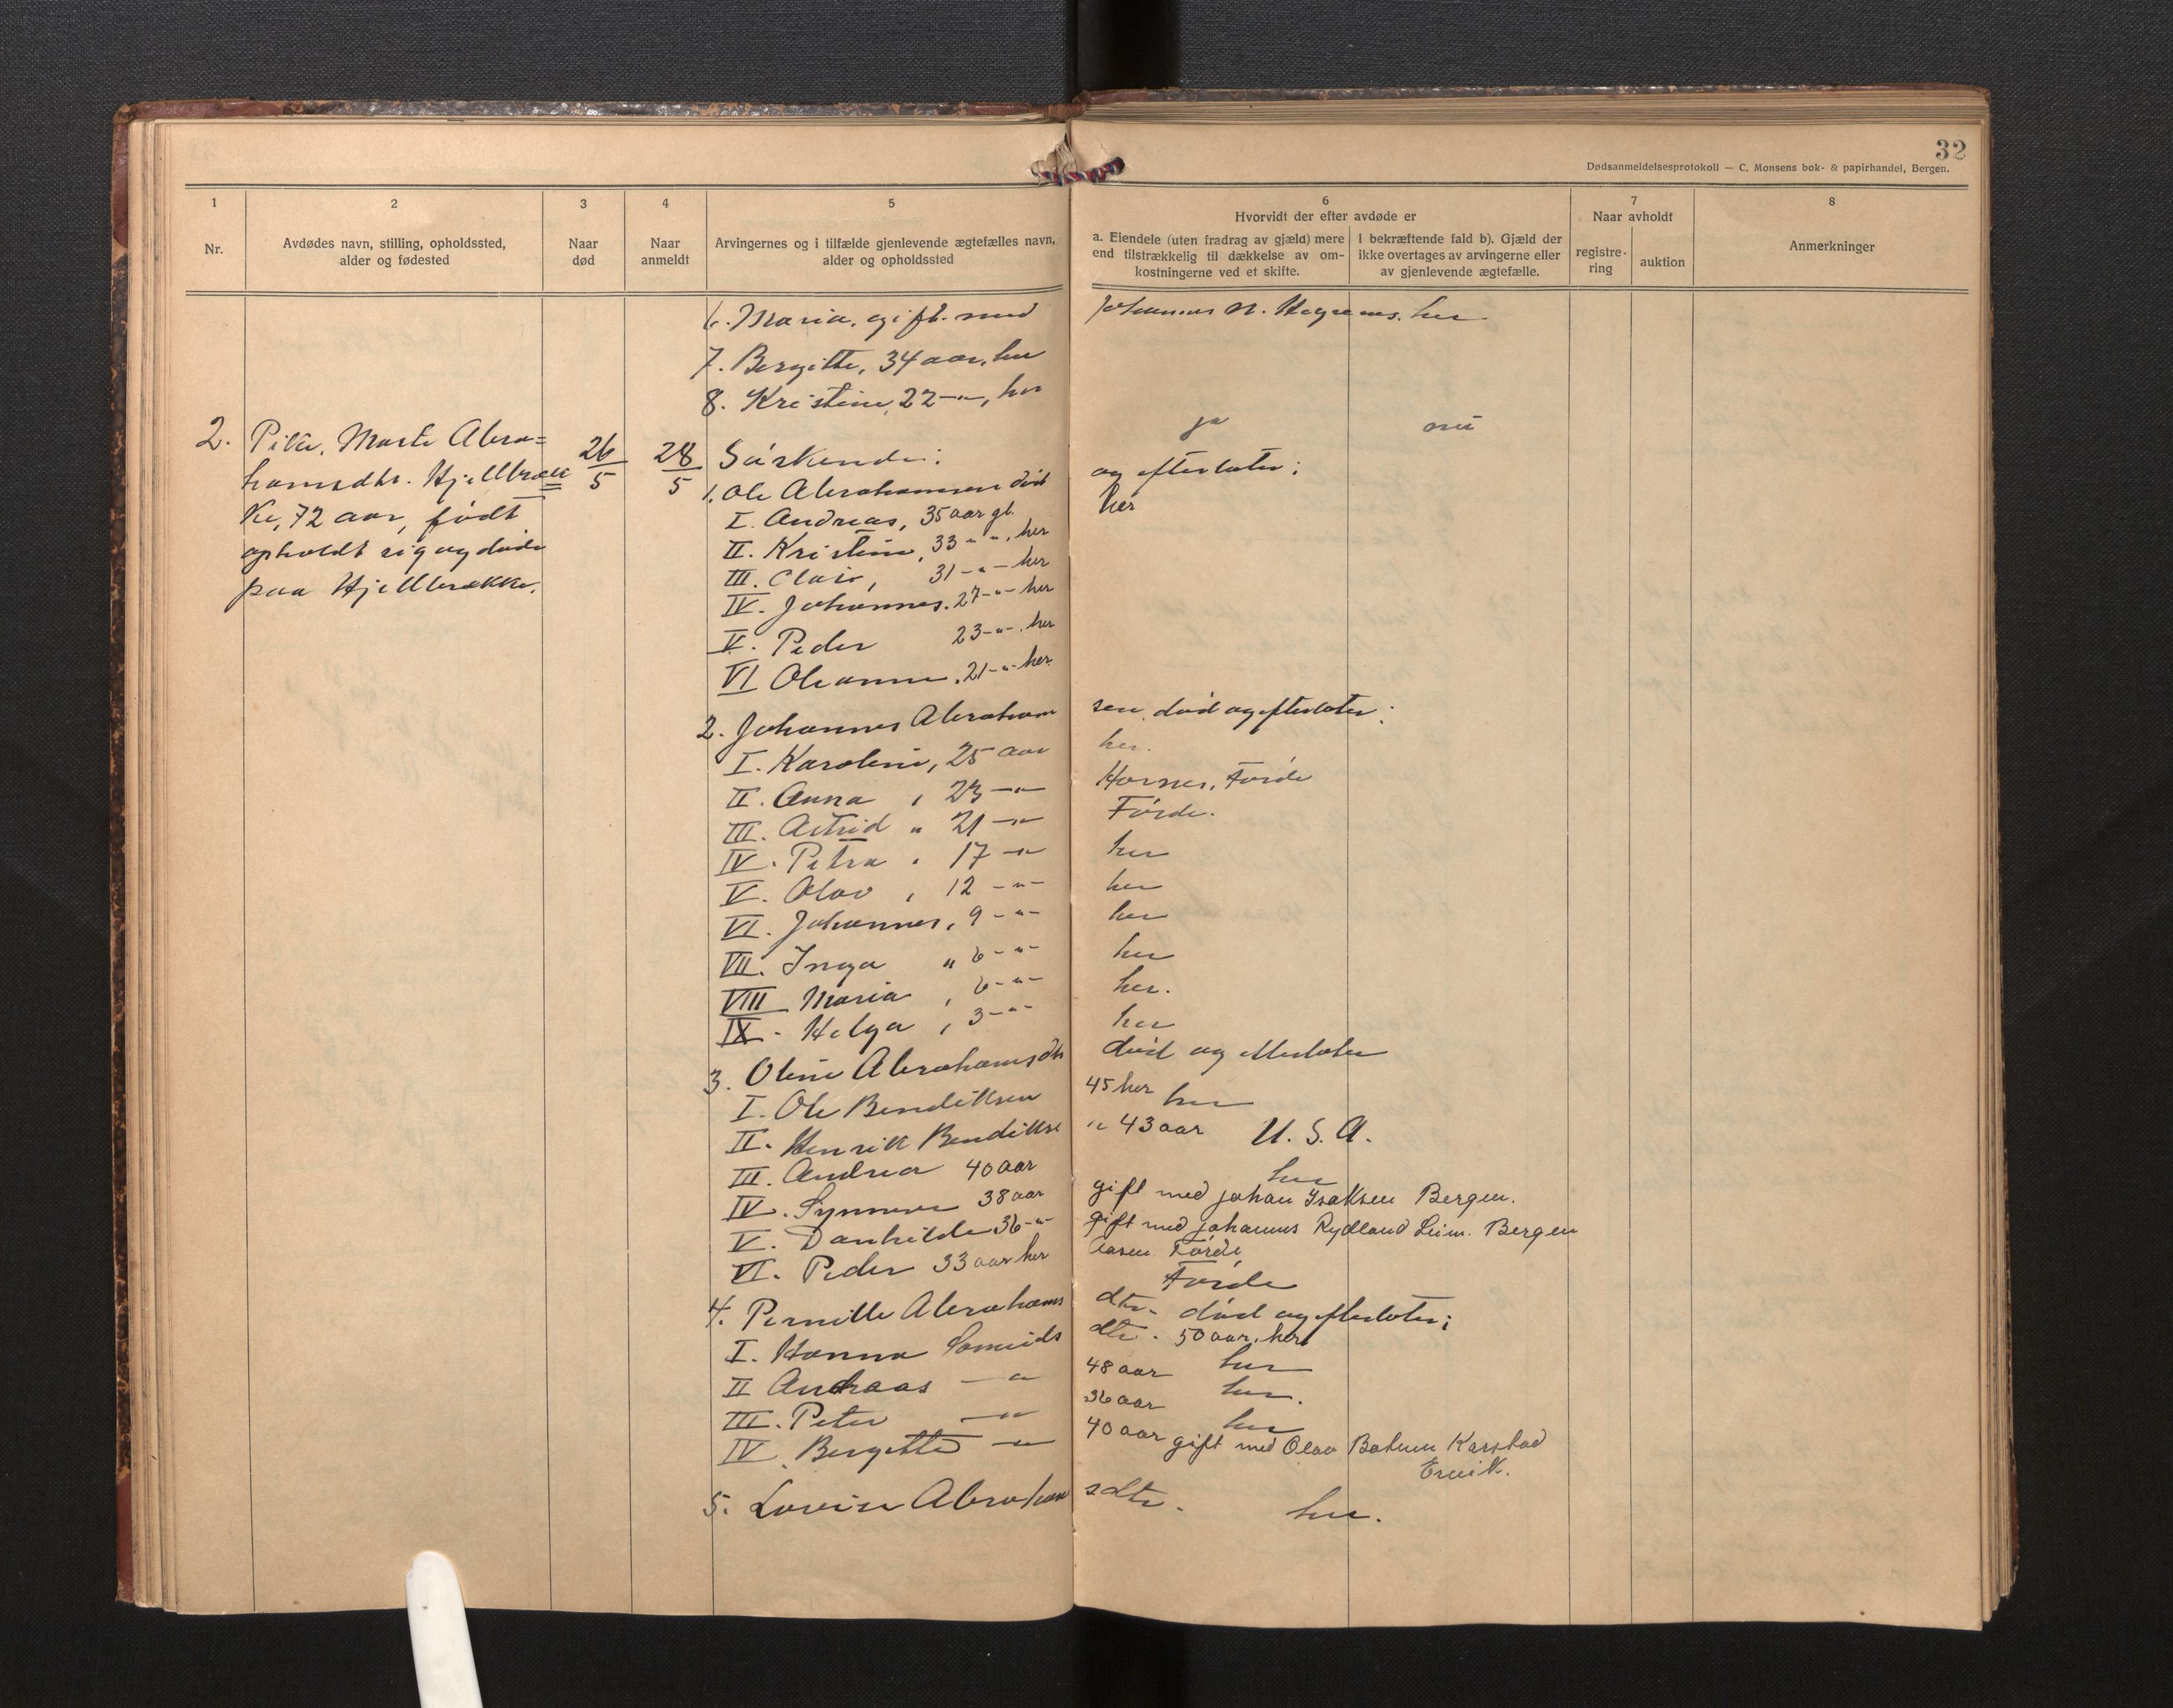 32
Dødsanmeldelsesprotokoll — C. Monsens bok- & papirhandel, Bergen.
1 2 3 4 5 6 7 8
Nr.
Avdødes navn, stilling, opholdssted,
alder og fødested
Naar
død
Naar
anmeldt
Arvingernes og i tilfælde gjenlevende ægtefælles navn,
alder og opholdssted
Hvorvidt der efter avdøde er
a. Eiendele (uten fradrag av gjæld) mere
end tilstrækkelig til dækkelse av om-
kostningerne ved et skifte.
I bekræftende fald b). Gjæld der
ikke overtages av arvingerne eller
av gjenlevende ægtefælle.
Naar avholdt
registre-
ring
auktion
Anmerkninger
6. Maria, gift med Johannes N. her
7. Bergitte, 34 aar, her
8. Kristine, 22 -"-, her
2. Pike, Marte Abra=
hamsdtr. Hjellbræk
ke, 72 aar, født
opholdt sig og døde
paa Hjellbrække.
26/5
28/5
ja
Søskende:
1. Ole Abrahamsen død og efterlater:
I. Andreas, 35 aar gl. her
II. Kristine, 33 " ", her
III. Olai, 31 -"- her
IV. Johannes. 27 -"- her
V. Peder 23 -"-. her
VI Oleanna, 21 -"- her.
2. Johannes Abraham sen, død og efterlater:
I. Karoline, 25 aar her.
II. Anna , 23 -"- Hornes, Førde
III. Astrid " 21 -"- Førde.
IV. Petra , 17 -"- her
V. Olav , 12 -"- her
VI. Johannes, 9 -"- her
VII. Inga " 6 -"- her
VIII Maria , 6 -"- her.
IX. Helga , 3 -"- her
3. Oline Abrahamsdtr død og efterlater
I. Ole Bendiksen 45 her her
II. Henrik Bendikse n 43 aar U. S. A.
III. Andrea 40 aar her
IV. Synneve 38 aar gift med Johan Isaksen Bergen.
V. Danhilde 36 -"- gift med Johannes Rydland Bergen
VI. Peder 33 aar her Aasen Førde
Førde
4. Pernille Abrahams dtr. død og efterlater;
I. Hanna dtr. 50 aar, her
II Andreas -"- 48 aar her
III. Peter -"- 36 aar her.
IV. Bergitte -"- 40 aar her
gift med Olav Karstad
5. Lovise Abraham sdtr. her.